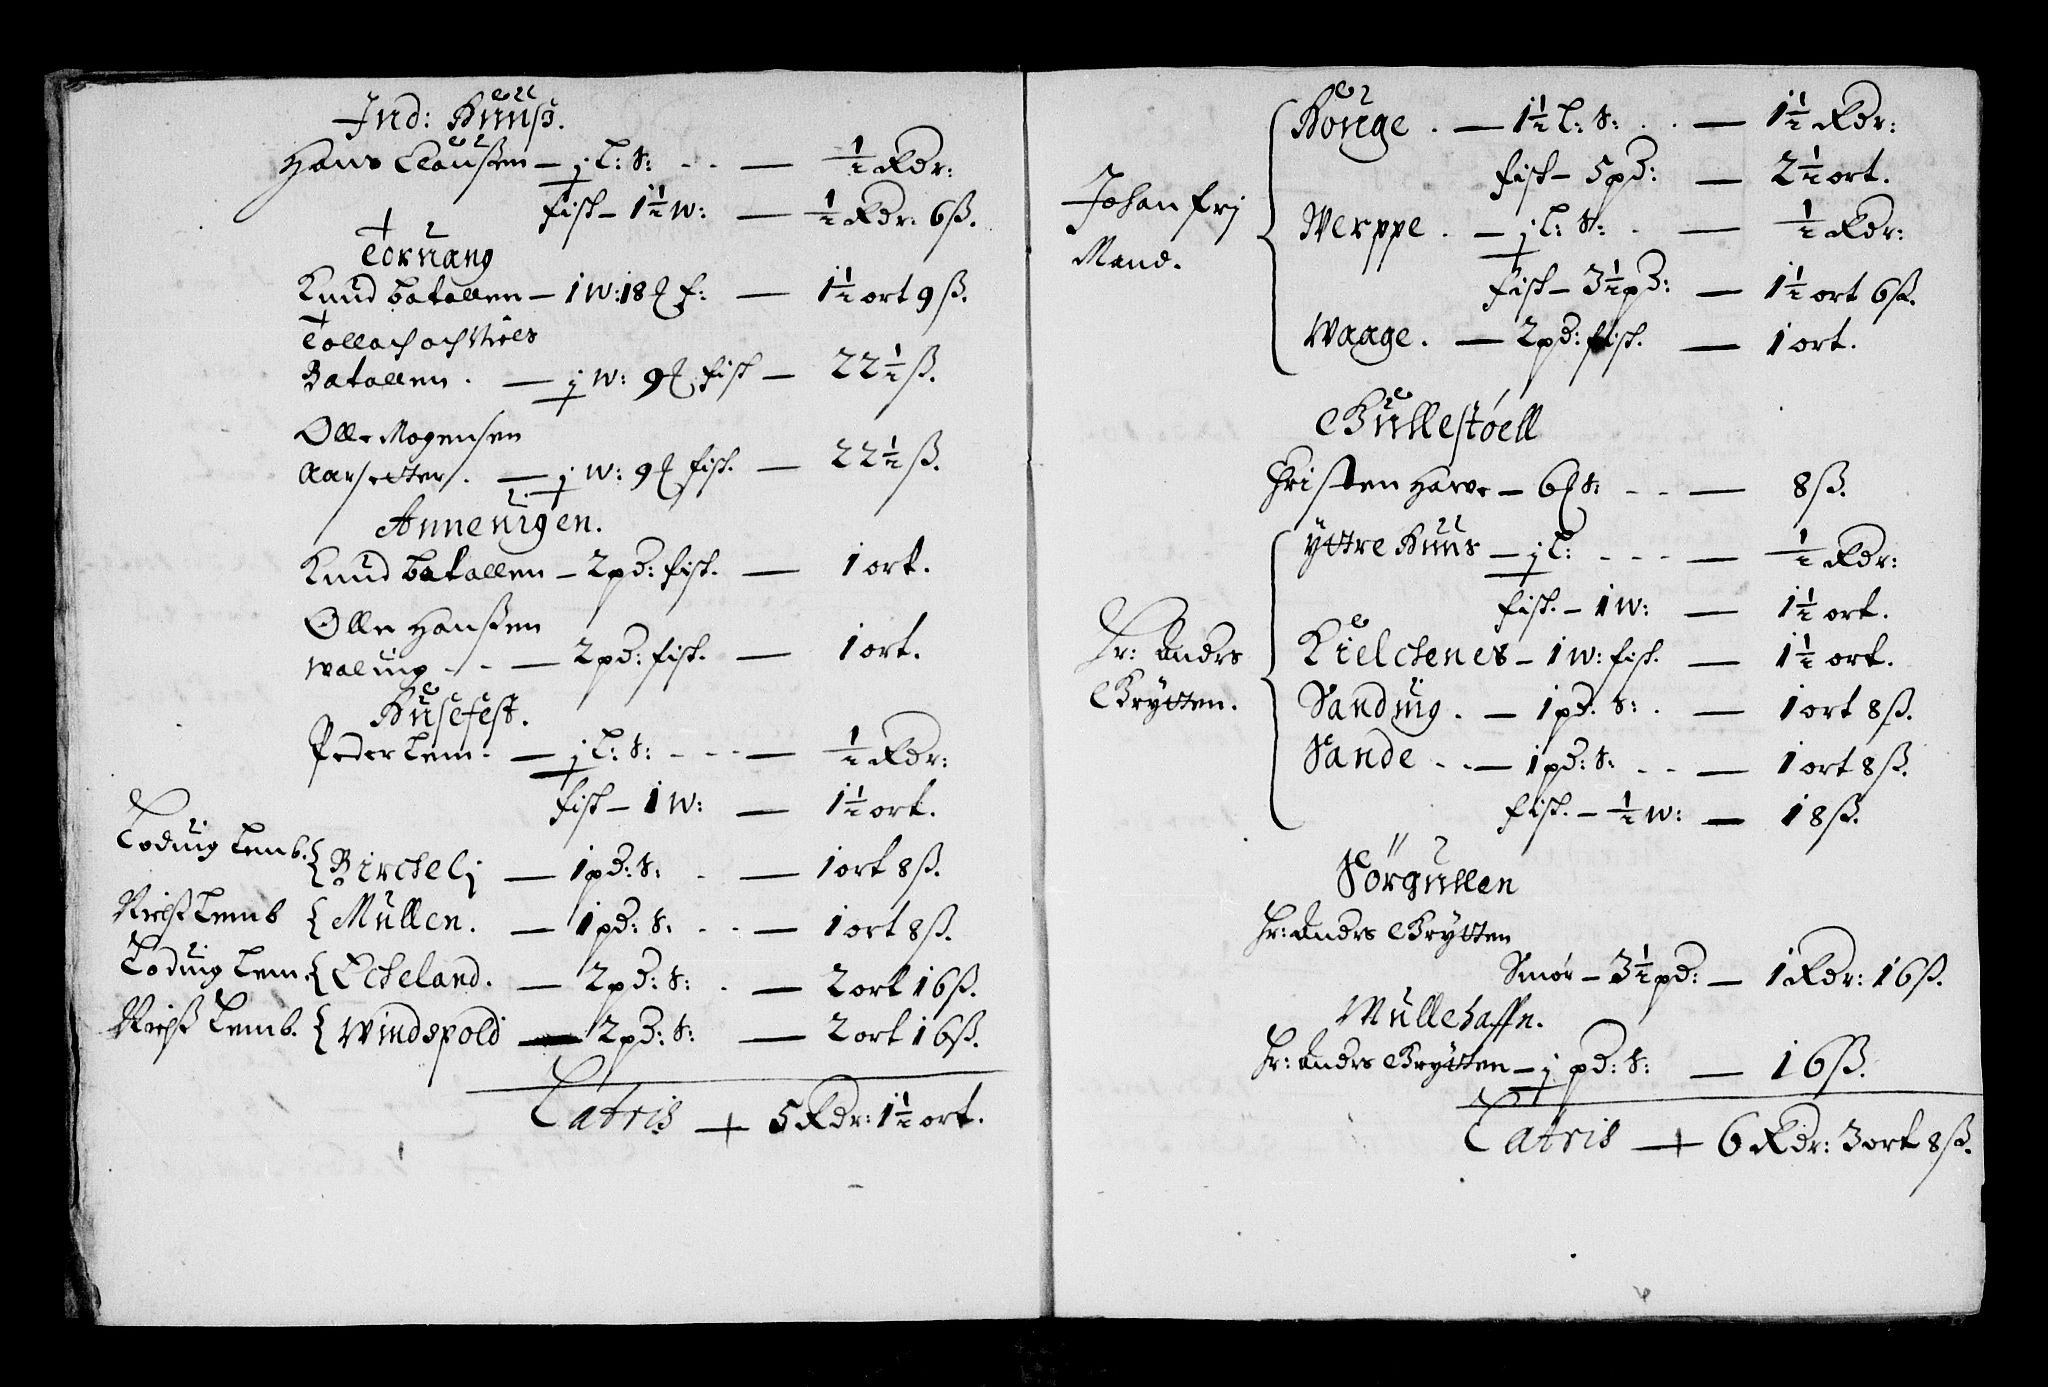 Ind: Huuss.
Hans Claussen — j l: s: - - — ½ Rdr:
fisk — 1½ w: — ½ Rdr: 6 ß.
Tornang
Knud batallen — 1 w: 18 f: — 1½ ort 9 ß.
Tollach och Niels
Batallen. — j w: 9 fisk — 22½ ß.
Olle Mogensen
Aarsetter. — j w: 9 fisk. — 22½ ß.
Annenigen.
Knud batallen — 2 pd: fisk. — 1 ort.
Olle Hanssen
waluig - - — 2 pd: fisk. — 1 ort.
Husefest.
Peder Lem. — j l: s: - - - — ½ Rdr:
fisk — 1 w: — 1½ ort.
Loduig Lemb. { Birchelj — 1 pd: s: - — 1 ort 8 ß.
Nielss Lemb { Mullen. — 1 pd: s: - - — 1 ort 8 ß.
Loduig Lem. { Echeland. — 2 pd: s: - — 2 ort 16 ß.
Nielss Lemb. { Windspold — 2 pd: s: — 2 ort 16 ß.
Latris + 5 Rdr: 1½ ort.
Johan frj
Mand.
Houge. — 1½ l: s: - - — 1½ Rdr:
fisk — 5 pd: — 2½ ort.
Werppe. — j l: s: - — ½ Rdr:
fisk — 3½ pd: — 1½ ort 6 ß.
Waage. — 2 pd: fisk. — 1 ort.
Gullestøell
Christen Hawe — 6 s: - - — 8 ß.
Hr: Anders
Grytten.
Yttre Huus — j l: - - - — ½ Rdr:
fisk. — 1 w: — 1½ ort.
Kielchenes — 1 w: fisk. — 1½ ort.
Sanduig. — 1 pd. s: - — 1 ort 8 ß.
Sande - - — 1 pd: s: - - — 1 ort 8 ß.
fisk. — ½ w: — 18 ß.
Sörgullen
Hr: Anders Grytten
Smør — 3½ pd: — 1 Rdr: 16 ß.
Mullehaffn.
Hr: Anders Grytten — j pd: s: — 16 ß.
Latris + 6 Rdr: 3 ort 8 ß.